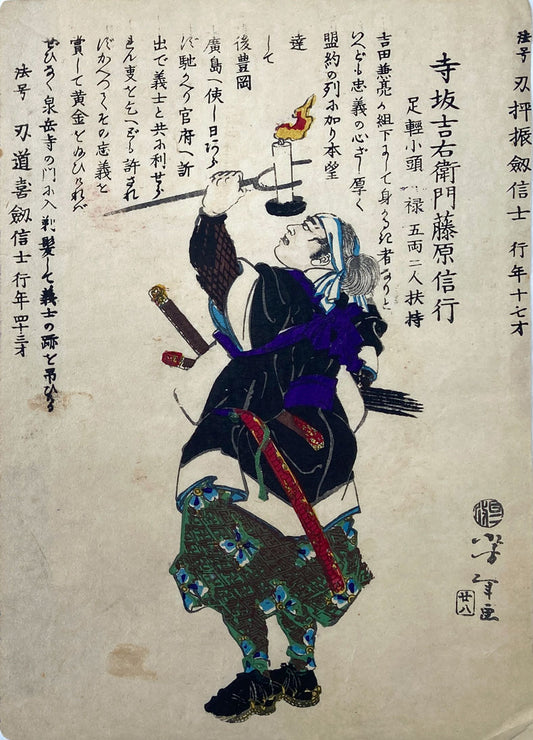 法号 刃抨振劔信士 行年十七才
寺坂吉右衛門藤原信行
足輕小頭 禄五両二人扶持
吉田兼亮が組下にして身かるき者なりと
いへども忠義の心ざし厚く
盟約の列に加り本望
達
して
後豊岡
廣島へ使し日あらず
馳かへり官府へ訴
出で義士と共に刑せら
れん事を乞へども許され
ずかへつてその忠義を
賞して黄金をたまひければ
ぜひなく泉岳寺の門に入剃髪して義士の跡を吊ひける
法号 刃道喜劔信士 行年四十三才
芳年画
廿八